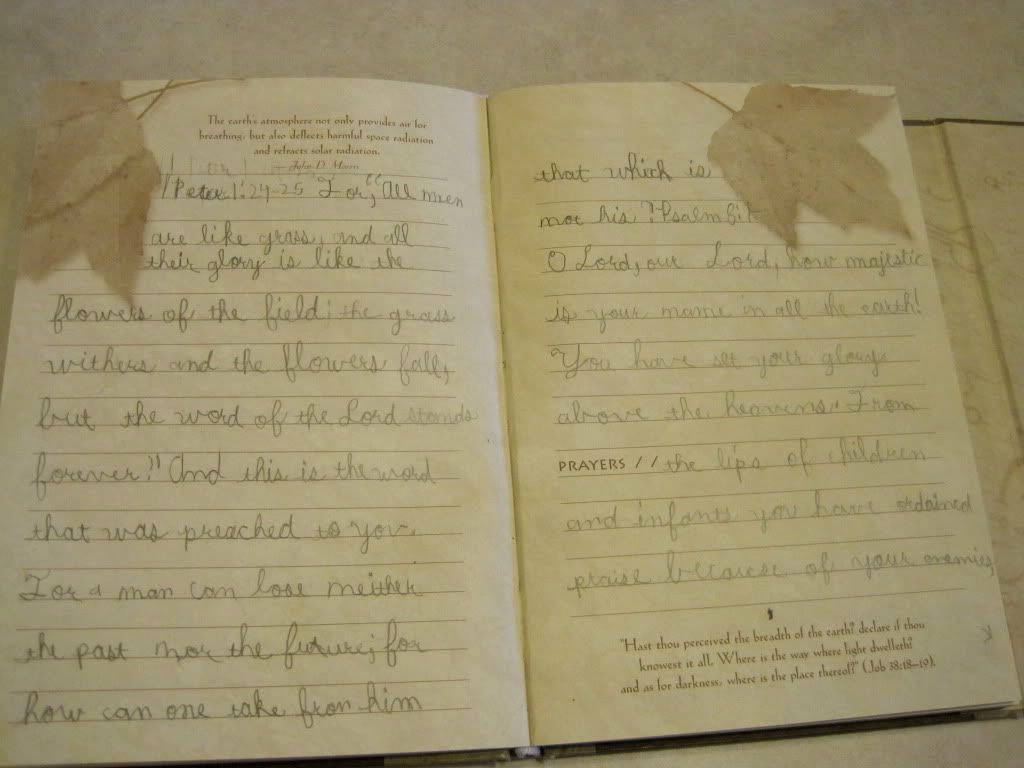 The earth's atmosphere not only provides air for
breathing, but also deflects harmful space radiation
and refracts solar radiation.
— John D. Morris
1 Peter 1:24-25 For, "All men
are like grass, and all
their glory is like the
flowers of the field; the grass
withers and the flowers fall,
but the word of the Lord stands
forever." And this is the word
that was preached to you.
For a man can lose neither
the past nor the future; for
how can one take from him
that which is
not his? Psalm 8:1
O Lord, our Lord, how majistic
is your name in all the earth!
You have set your glory
above the heavens. From
PRAYERS // the lips of children
and infants you have ordained
praise because of your enemies,
"Hast thou perceived the breadth of the earth? declare if thou
knowest it all. Where is the way where light dwelleth?
and as for darkness, where is the place thereof?" (Job 38:18–19).